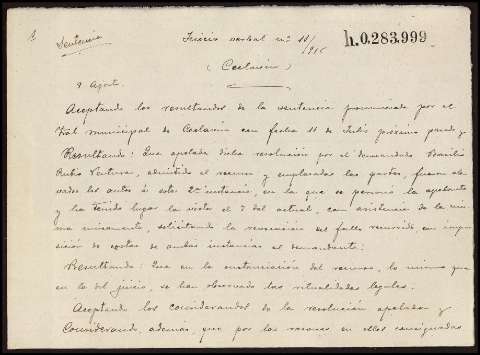 Sentencia
Juicio verbal nº 11/
/915
h.0.283.999
(Ceclavin)
9 Agost.
Aceptando los resultandos de la sentencia pronunciada por el
Tral municipal de Ceclavin con fecha 11 de Julio próximo pasado y
Resultando: Que apelada dicha resolución por el demandado Basilio
Rubio Ventura, admitido el recurso y emplazadas las partes, fueron ele
vados los autos á esta 2ª instancia, en la que se personó la apelante
y ha tenido lugar la vista el 7 del actual, con asistencia de la mis
ma unicamente, solicitando la revocación del fallo recurrido con impo
sición de costas de ambas instancias al demandante:
Resultando: Que en la sustanciación del recurso, lo mismo que
en lo del juicio, se han observado las ritualidades legales.
Aceptando los considerandos de la resolución apelada y
Considerando, además, que por las razones en ellos consignadas